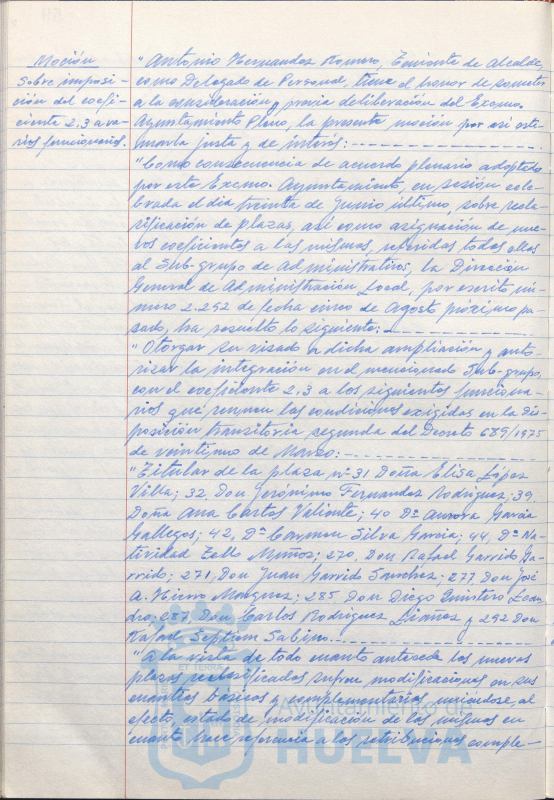 Moción
Sobre imposi-
ción del coefi-
ciente 2,3 a va-
rios funcionarios.
"Antonio Hernandez Romero, Teniente de Alcalde,
como Delegado de Personal, tiene el honor de someter
a la consideración y previa deliberación del Excmo.
Ayuntamiento Pleno, la presente moción por así esti-
marla justa y de interés:
"Como consecuencia de acuerdo plenario adoptado
por este Excmo. Ayuntamiento, en sesión cele-
brada el día treinta de Junio último, sobre recla-
sificación de plazas, así como asignación de nue-
vos coeficientes a las mismas, referidas todas ellas
al Sub-grupo de Administrativos, la Dirección
General de Administración Local, por escrito nú-
mero 2.292 de fecha cinco de Agosto próximo pa-
sado, ha resuelto lo siguiente:
"Otorgar su visado a dicha ampliación y auto-
rizar la integración en el mencionado Sub-grupo,
con el coeficiente 2,3 a los siguientes funciona-
rios que reunen las condiciones exigidas en la dis-
posición transitoria segunda del Decreto 689/1975
de veintiuno de Marzo:
"Titular de la plaza nº 31 Doña Elisa López
Villa; 32, Don Jerónimo Fernandez Rodríguez; 39,
Doña Ana Cartos Valiente; 40 Dª Aurora García
Gallegos; 42, Dª Carmen Silva García; 44, Dª Na-
tividad Tello Muñoz; 270, Don Rafael Garrido Ga-
rrido; 271, Don Juan Garrido Sanchez; 277 Don José
A. Hierro Marquez; 285 Don Diego Quintero Lean-
dro, 287, Don Carlos Rodríguez Liañez y 292 Don
Rafael Septiem Sabino.
"A la vista de todo cuanto antecede las nuevas
plazas reclasificadas sufren modificaciones en sus
cuantías básicas y complementarias uniéndose, al
efecto, estado de modificación de las mismas en
cuanto hace referencia a las retribuciones comple-
ET TERRA
Ayuntamiento de
HUELVA